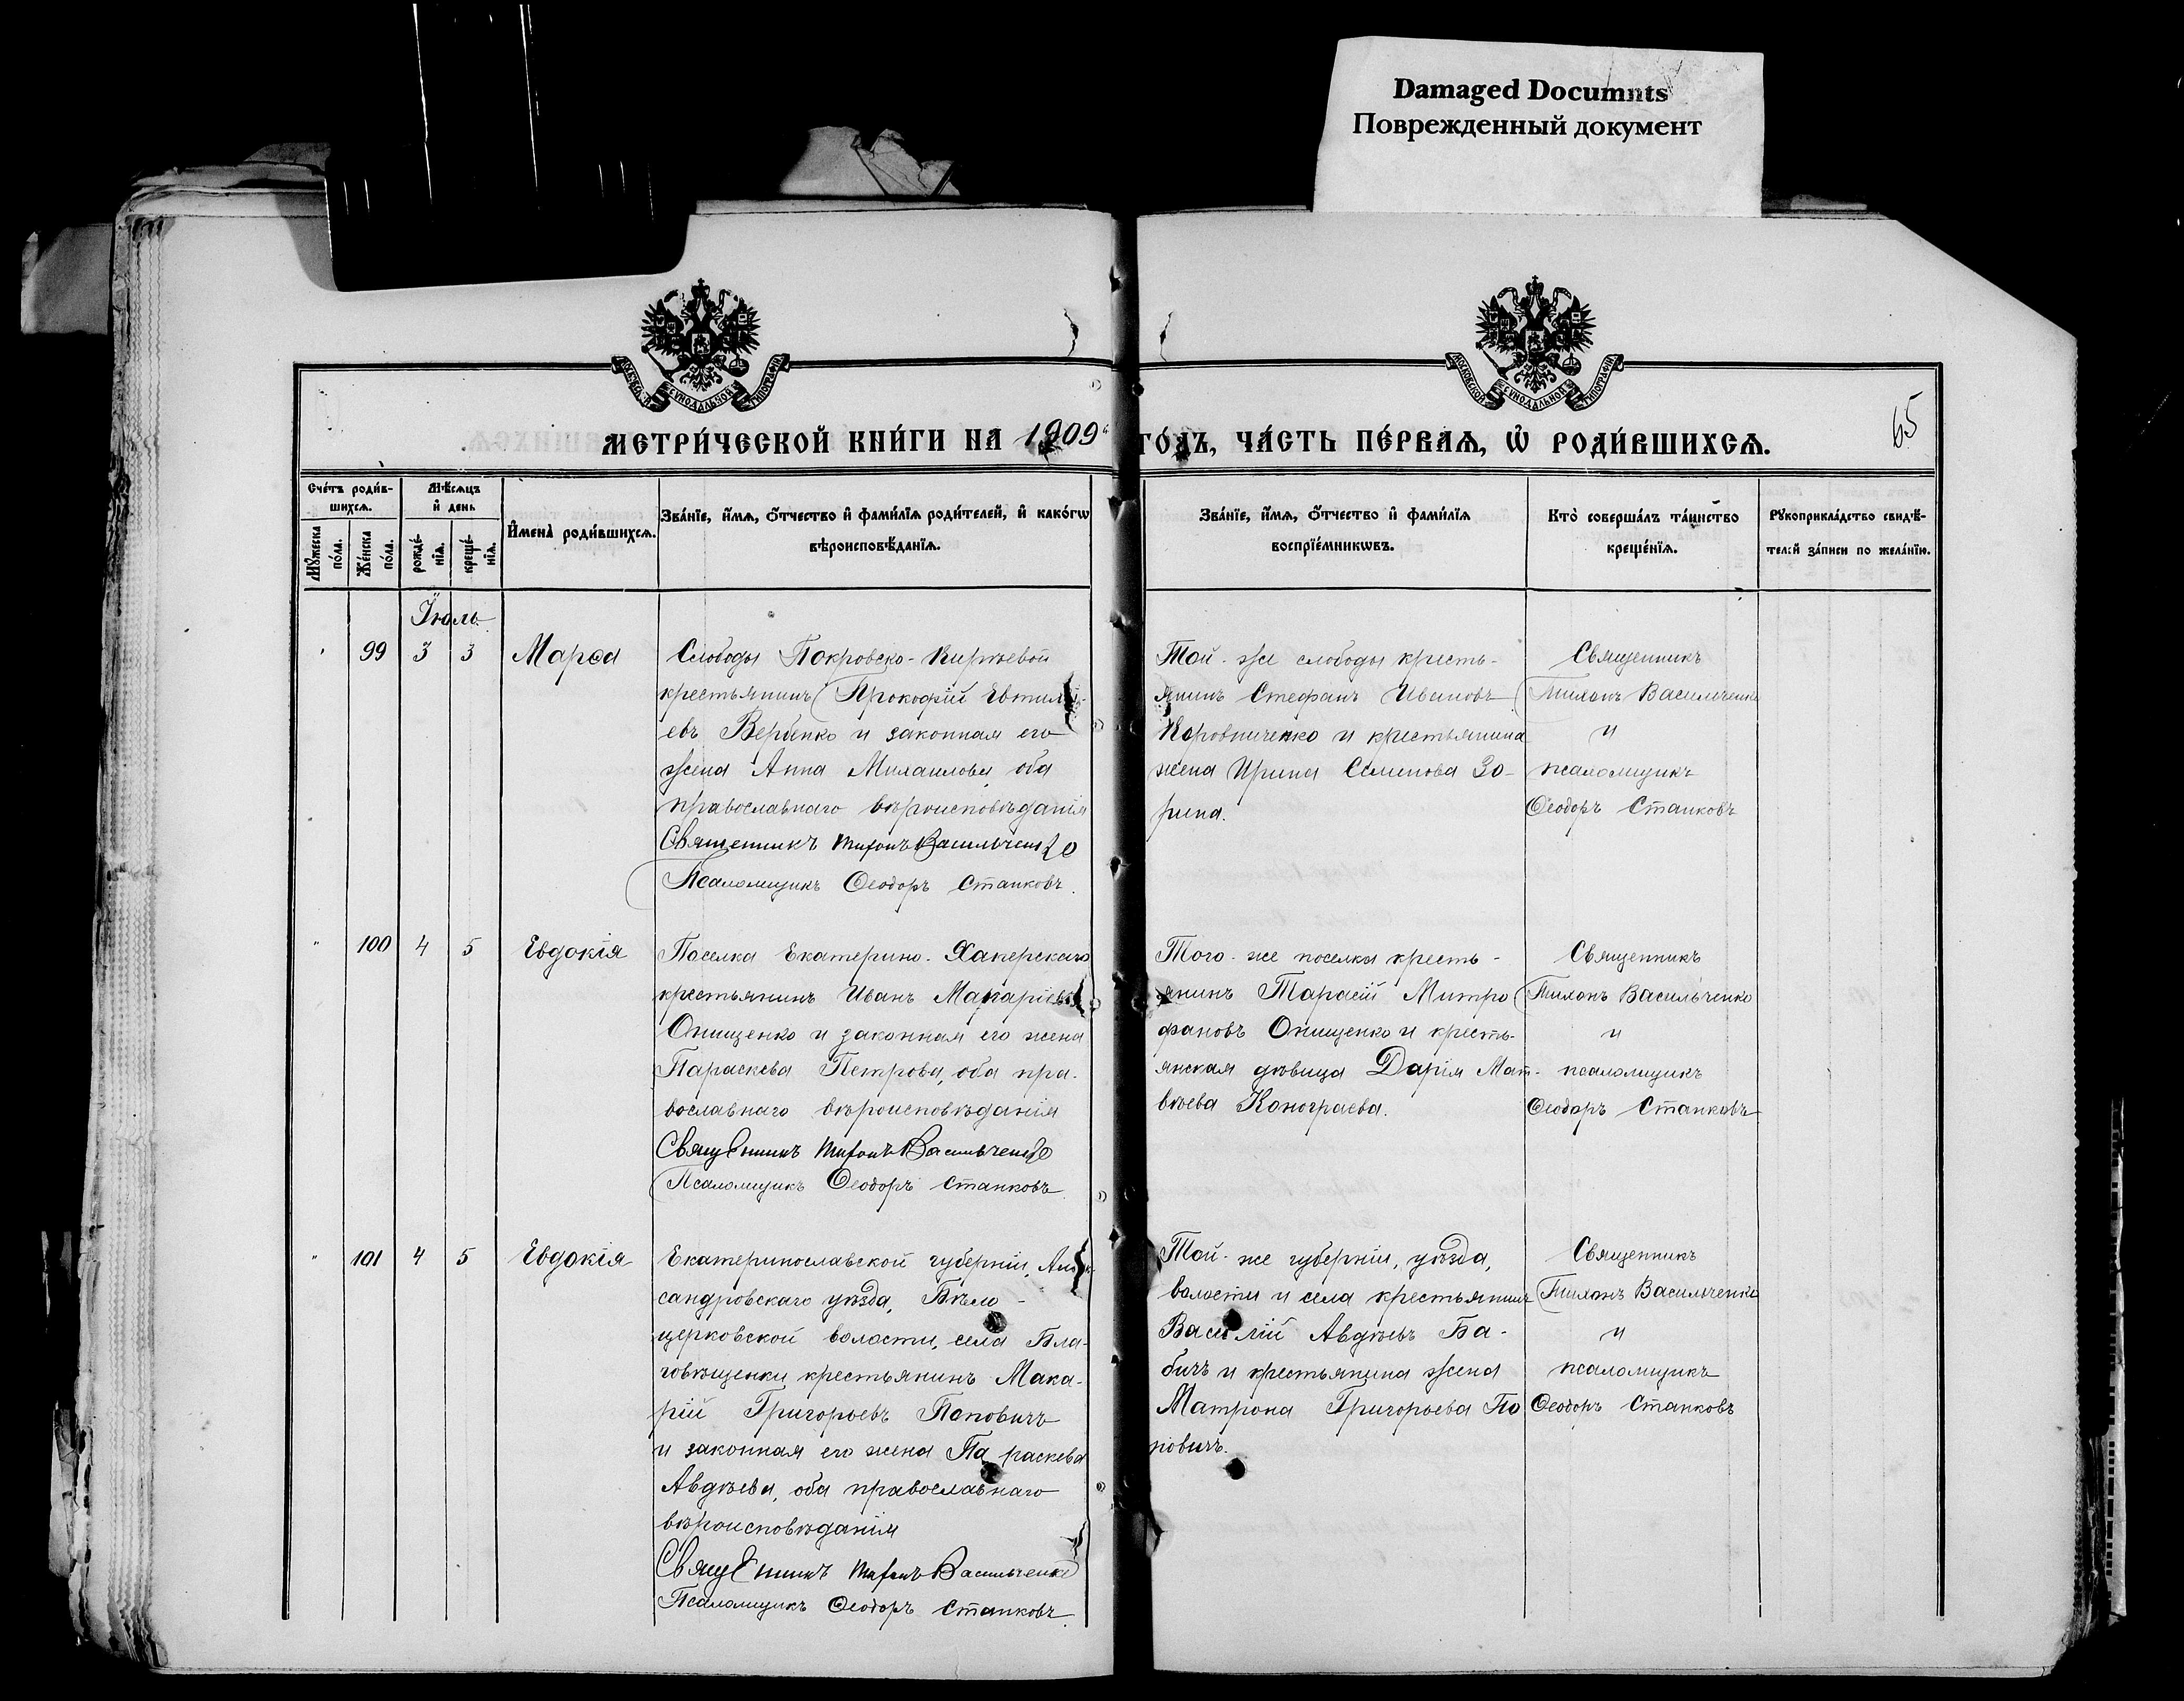 Damaged Documnts
Поврежденный документ
МОСКОВСКОЙ СѴНОДАЛЬНОЙ ТИПОГРАФІИ
МОСКОВСКОЙ СѴНОДАЛЬНОЙ ТИПОГРАФІИ
65
МЕТРИ́ЧЕСКОЙ КНИ́ГИ НА 1909 ГО́ДЪ, ЧА́СТЬ ПЕ́РВАѦ, Ѡ҆ РОДИ́ВШИХСѦ.
Сче́тъ роди́в-
шихсѧ.
Мꙋ́жеска по́ла.
Же́нска по́ла.
Мѣ́сѧцъ
и҆ де́нь
рожде́-
нїѧ.
креще́-
нїѧ.
И҆мена̀ роди́вшихсѧ.
Зва́нїе, и҆́мѧ, ѻ҆́тчество и҆ фами́лїѧ роди́телей, и҆ како́гѡ
вѣроисповѣ́данїѧ.
Зва́нїе, и҆́мѧ, ѻ҆́тчество и҆ фами́лїѧ
воспрїе́мникѡвъ.
Кто̀ соверша́лъ та́инство
креще́нїѧ.
Рꙋкоприкла́дство свидѣ́-
телей за́писи по жела́нїю.
Іюль
99 3 3 Марѳа
Слободы Покровско-Киръевой
крестьянинъ Прокофій Евтихі-
евъ Вербенко и законная его
жена Анна Михаилова, оба
православнаго вѣроисповѣданія
Священникъ Тихонъ Васильченко
Псаломщикъ Ѳеодоръ Станковъ.
Той-же слободы кресть-
янинъ Стефанъ Ивановъ
Коровниченко и крестьянина
жена Ирина Семенова Зо-
рина.
Священникъ
Тихонъ Васильченко
и
псаломщикъ
Ѳеодоръ Станковъ
100 4 5 Евдокія
Поселка Екатерино-Хаперскаго
крестьянинъ Иванъ Макаріевъ
Онищенко и законная его жена
Параскева Петрова, оба пра-
вославнаго вѣроисповѣданія
Священникъ Тихонъ Васильченко
Псаломщикъ Ѳеодоръ Станковъ
Того-же поселка кресть-
янинъ Тарасій Митро
фановъ Онищенко и кресть-
янская дѣвица Дарія Мат-
вѣева Конограева.
Священникъ
Тихонъ Васильченко
и
псаломщикъ
Ѳеодоръ Станковъ
101 4 5 Евдокія
Екатеринославской губерніи, Алек-
сандровскаго уѣзда, Бѣло-
церковской волости, села Бла-
говѣщенки крестьянинъ Мака-
рій Григорьевъ Поповичъ
и законная его жена Параскева
Авдѣева, оба православнаго
вѣроисповѣданія
Священникъ Тихонъ Васильченко
Псаломщикъ Ѳеодоръ Станковъ.
Той-же губерніи, уѣзда,
волости и села крестьянинъ
Василій Авдѣевъ Ба-
бичъ и крестьянина жена
Матрона Григорьева По
повичъ.
Священникъ
Тихонъ Васильченко
и
псаломщикъ
Ѳеодоръ Станковъ